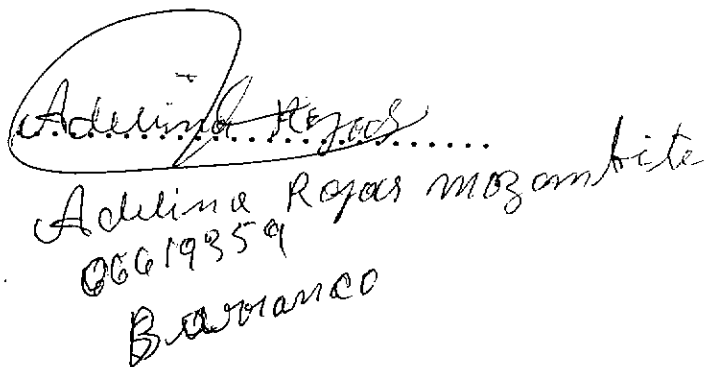 Adelina Rojas
Adelina Rojas mozombite
06619359
Barranco